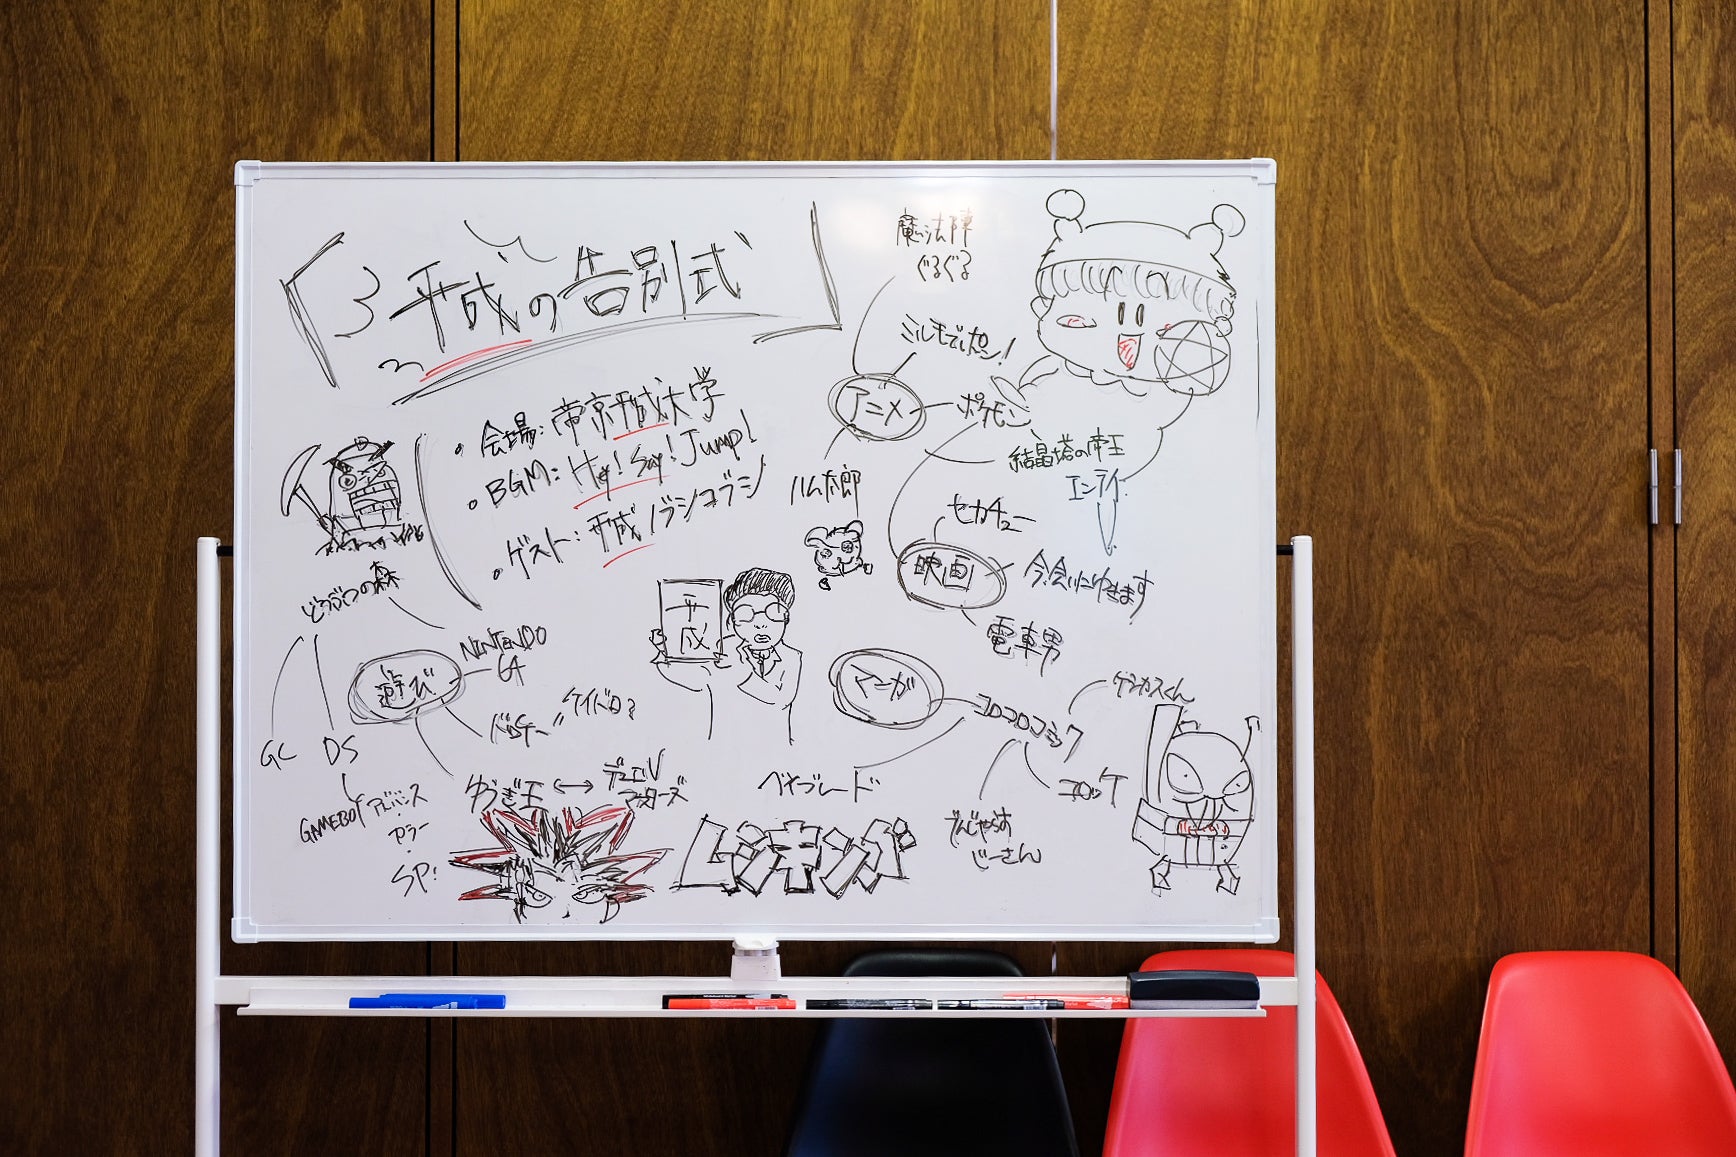 「平成の告別式」
・会場：帝京平成大学
・BGM：Hey! Say! Jump!
・ゲスト：平成ノブシコブシ
どうぶつの森
GC
DS
GAMEBOY アドバンス
・カラー
・SP!
遊び
NINTENDO
64
ドロケー
ケイドロ?
ゆうぎ王 ↔ デュエル
マスターズ
平成
魔法陣
ぐるぐる
ミルモでポン!
アニメ
ポケモン
結晶塔の帝王
エンテイ
ハム太郎
セカチュー
映画
今、会いにゆきます
電車男
マンガ
コロコロコミック
ケシカスくん
コロッケ
でんじゃらす
じーさん
ベイブレード
ムシキング